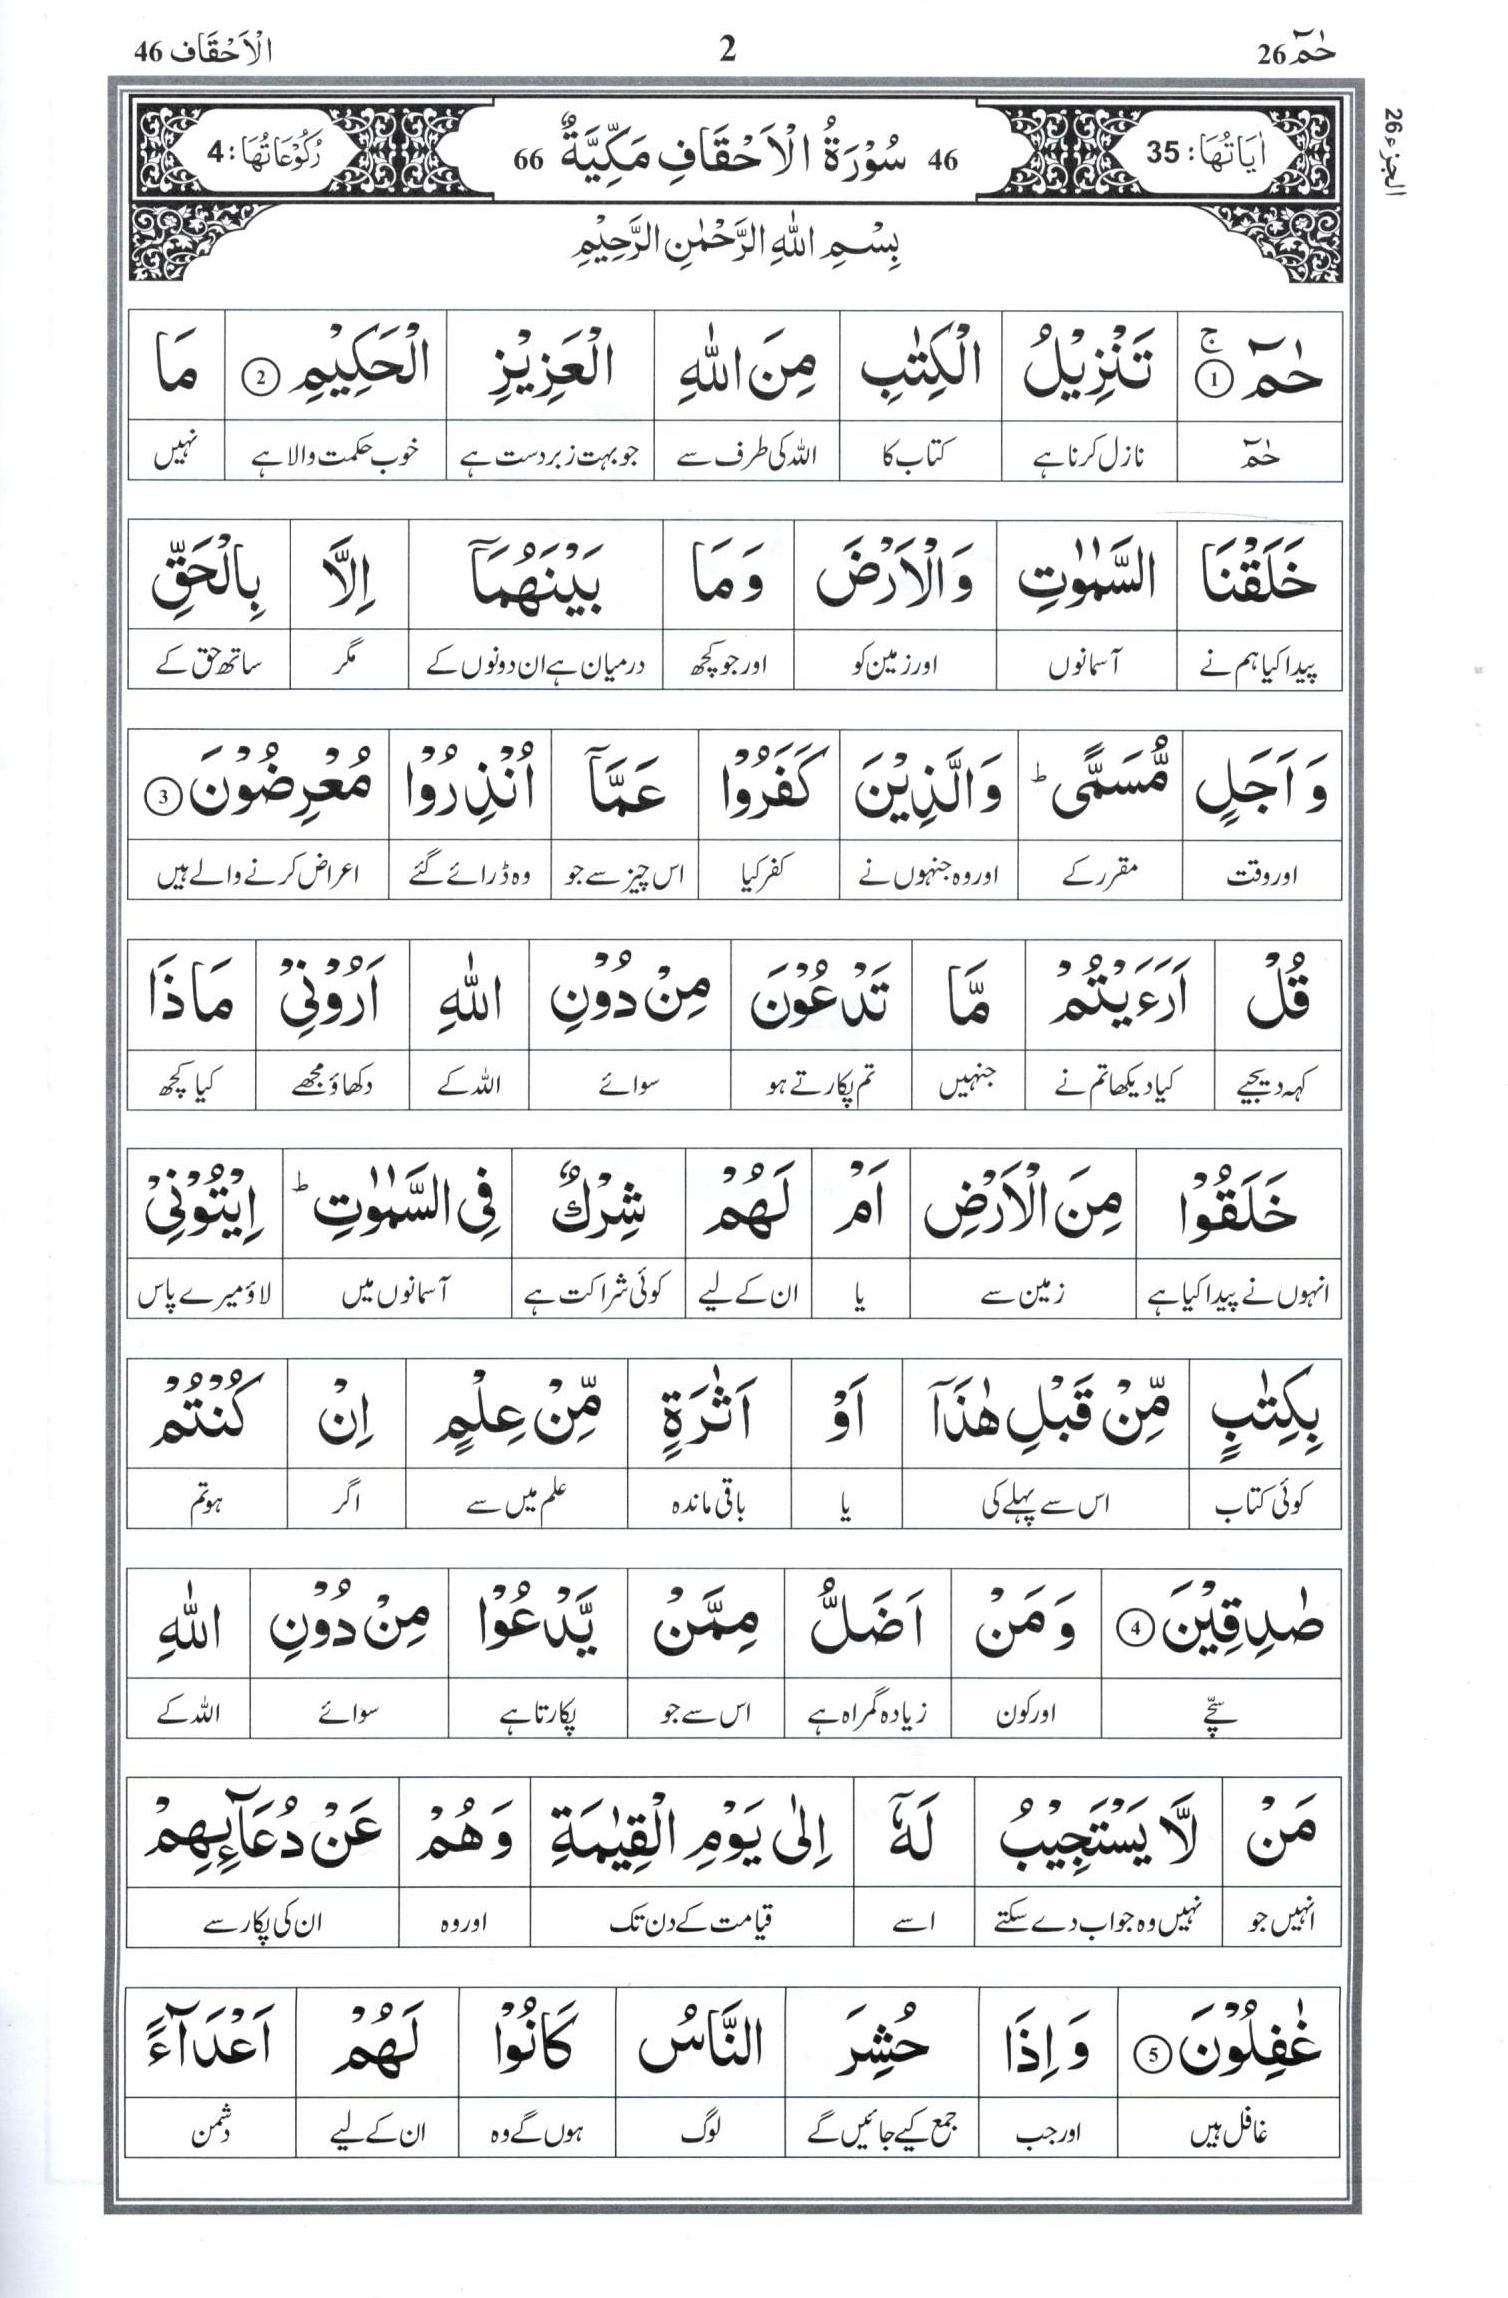 حٰمٓ 26
2
الْاَحْقَاف 46
الجزء 26
اٰيَاتُهَا: 35
46 سُوْرَةُ الْاَحْقَافِ مَكِّيَّةٌ 66
رُكُوْعَاتُهَا: 4
بِسْمِ اللّٰهِ الرَّحْمٰنِ الرَّحِيْمِ
حٰمٓ ۚ ① تَنْزِيْلُ الْكِتٰبِ مِنَ اللّٰهِ الْعَزِيْزِ الْحَكِيْمِ ② مَا
حٰمٓ نازل کرنا ہے کتاب کا اللہ کی طرف سے جو بہت زبردست ہے خوب حکمت والا ہے نہیں
خَلَقْنَا السَّمٰوٰتِ وَالْاَرْضَ وَمَا بَيْنَهُمَآ اِلَّا بِالْحَقِّ
پیدا کیا ہم نے آسمانوں اور زمین کو اور جو کچھ درمیان ہے ان دونوں کے مگر ساتھ حق کے
وَاَجَلٍ مُّسَمًّى ؕ وَالَّذِيْنَ كَفَرُوْا عَمَّآ اُنْذِرُوْا مُعْرِضُوْنَ ③
اور وقت مقرر کے اور وہ جنہوں نے کفر کیا اس چیز سے جو وہ ڈرائے گئے اعراض کرنے والے ہیں
قُلْ اَرَءَيْتُمْ مَّا تَدْعُوْنَ مِنْ دُوْنِ اللّٰهِ اَرُوْنِيْ مَاذَا
کہہ دیجیے کیا دیکھا تم نے جنہیں تم پکارتے ہو سوائے اللہ کے دکھاؤ مجھے کیا کچھ
خَلَقُوْا مِنَ الْاَرْضِ اَمْ لَهُمْ شِرْكٌ فِي السَّمٰوٰتِ ؕ اِيْتُوْنِيْ
انہوں نے پیدا کیا ہے زمین سے یا ان کے لیے کوئی شراکت ہے آسمانوں میں لاؤ میرے پاس
بِكِتٰبٍ مِّنْ قَبْلِ هٰذَآ اَوْ اَثٰرَةٍ مِّنْ عِلْمٍ اِنْ كُنْتُمْ
کوئی کتاب اس سے پہلے کی یا باقی ماندہ علم میں سے اگر ہو تم
صٰدِقِيْنَ ④ وَمَنْ اَضَلُّ مِمَّنْ يَّدْعُوْا مِنْ دُوْنِ اللّٰهِ
سچّے اور کون زیادہ گمراہ ہے اس سے جو پکارتا ہے سوائے اللہ کے
مَنْ لَّا يَسْتَجِيْبُ لَهٗٓ اِلٰى يَوْمِ الْقِيٰمَةِ وَهُمْ عَنْ دُعَآئِهِمْ
انہیں جو نہیں وہ جواب دے سکتے اسے قیامت کے دن تک اور وہ ان کی پکار سے
غٰفِلُوْنَ ⑤ وَاِذَا حُشِرَ النَّاسُ كَانُوْا لَهُمْ اَعْدَآءً
غافل ہیں اور جب جمع کیے جائیں گے لوگ ہوں گے وہ ان کے لیے دشمن